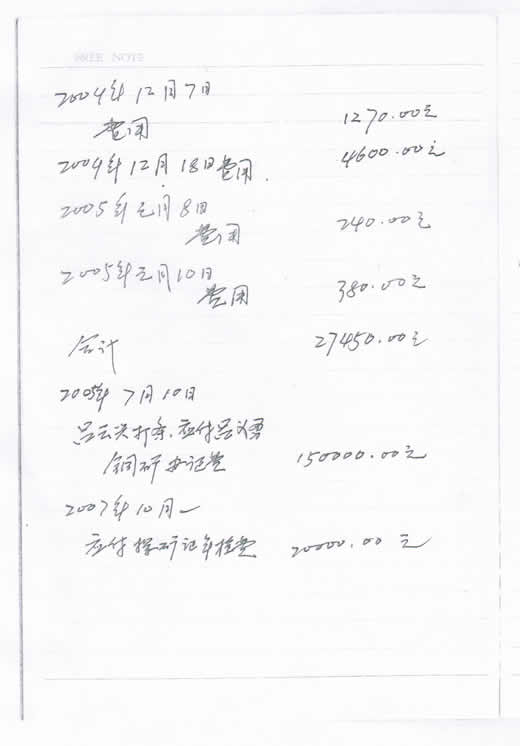 FREE NOTE
2004年12月7日
费用 1270.00元
2004年12月18日费用. 4600.00元
2005年元月8日
费用 240.00元
2005年元月10日
费用 380.00元
合计 27450.00元
2005年7月10日
打条.应付吕义勇
铜矿办证费 150000.00元
2007年10月一
应付探矿证年检费 20000.00元